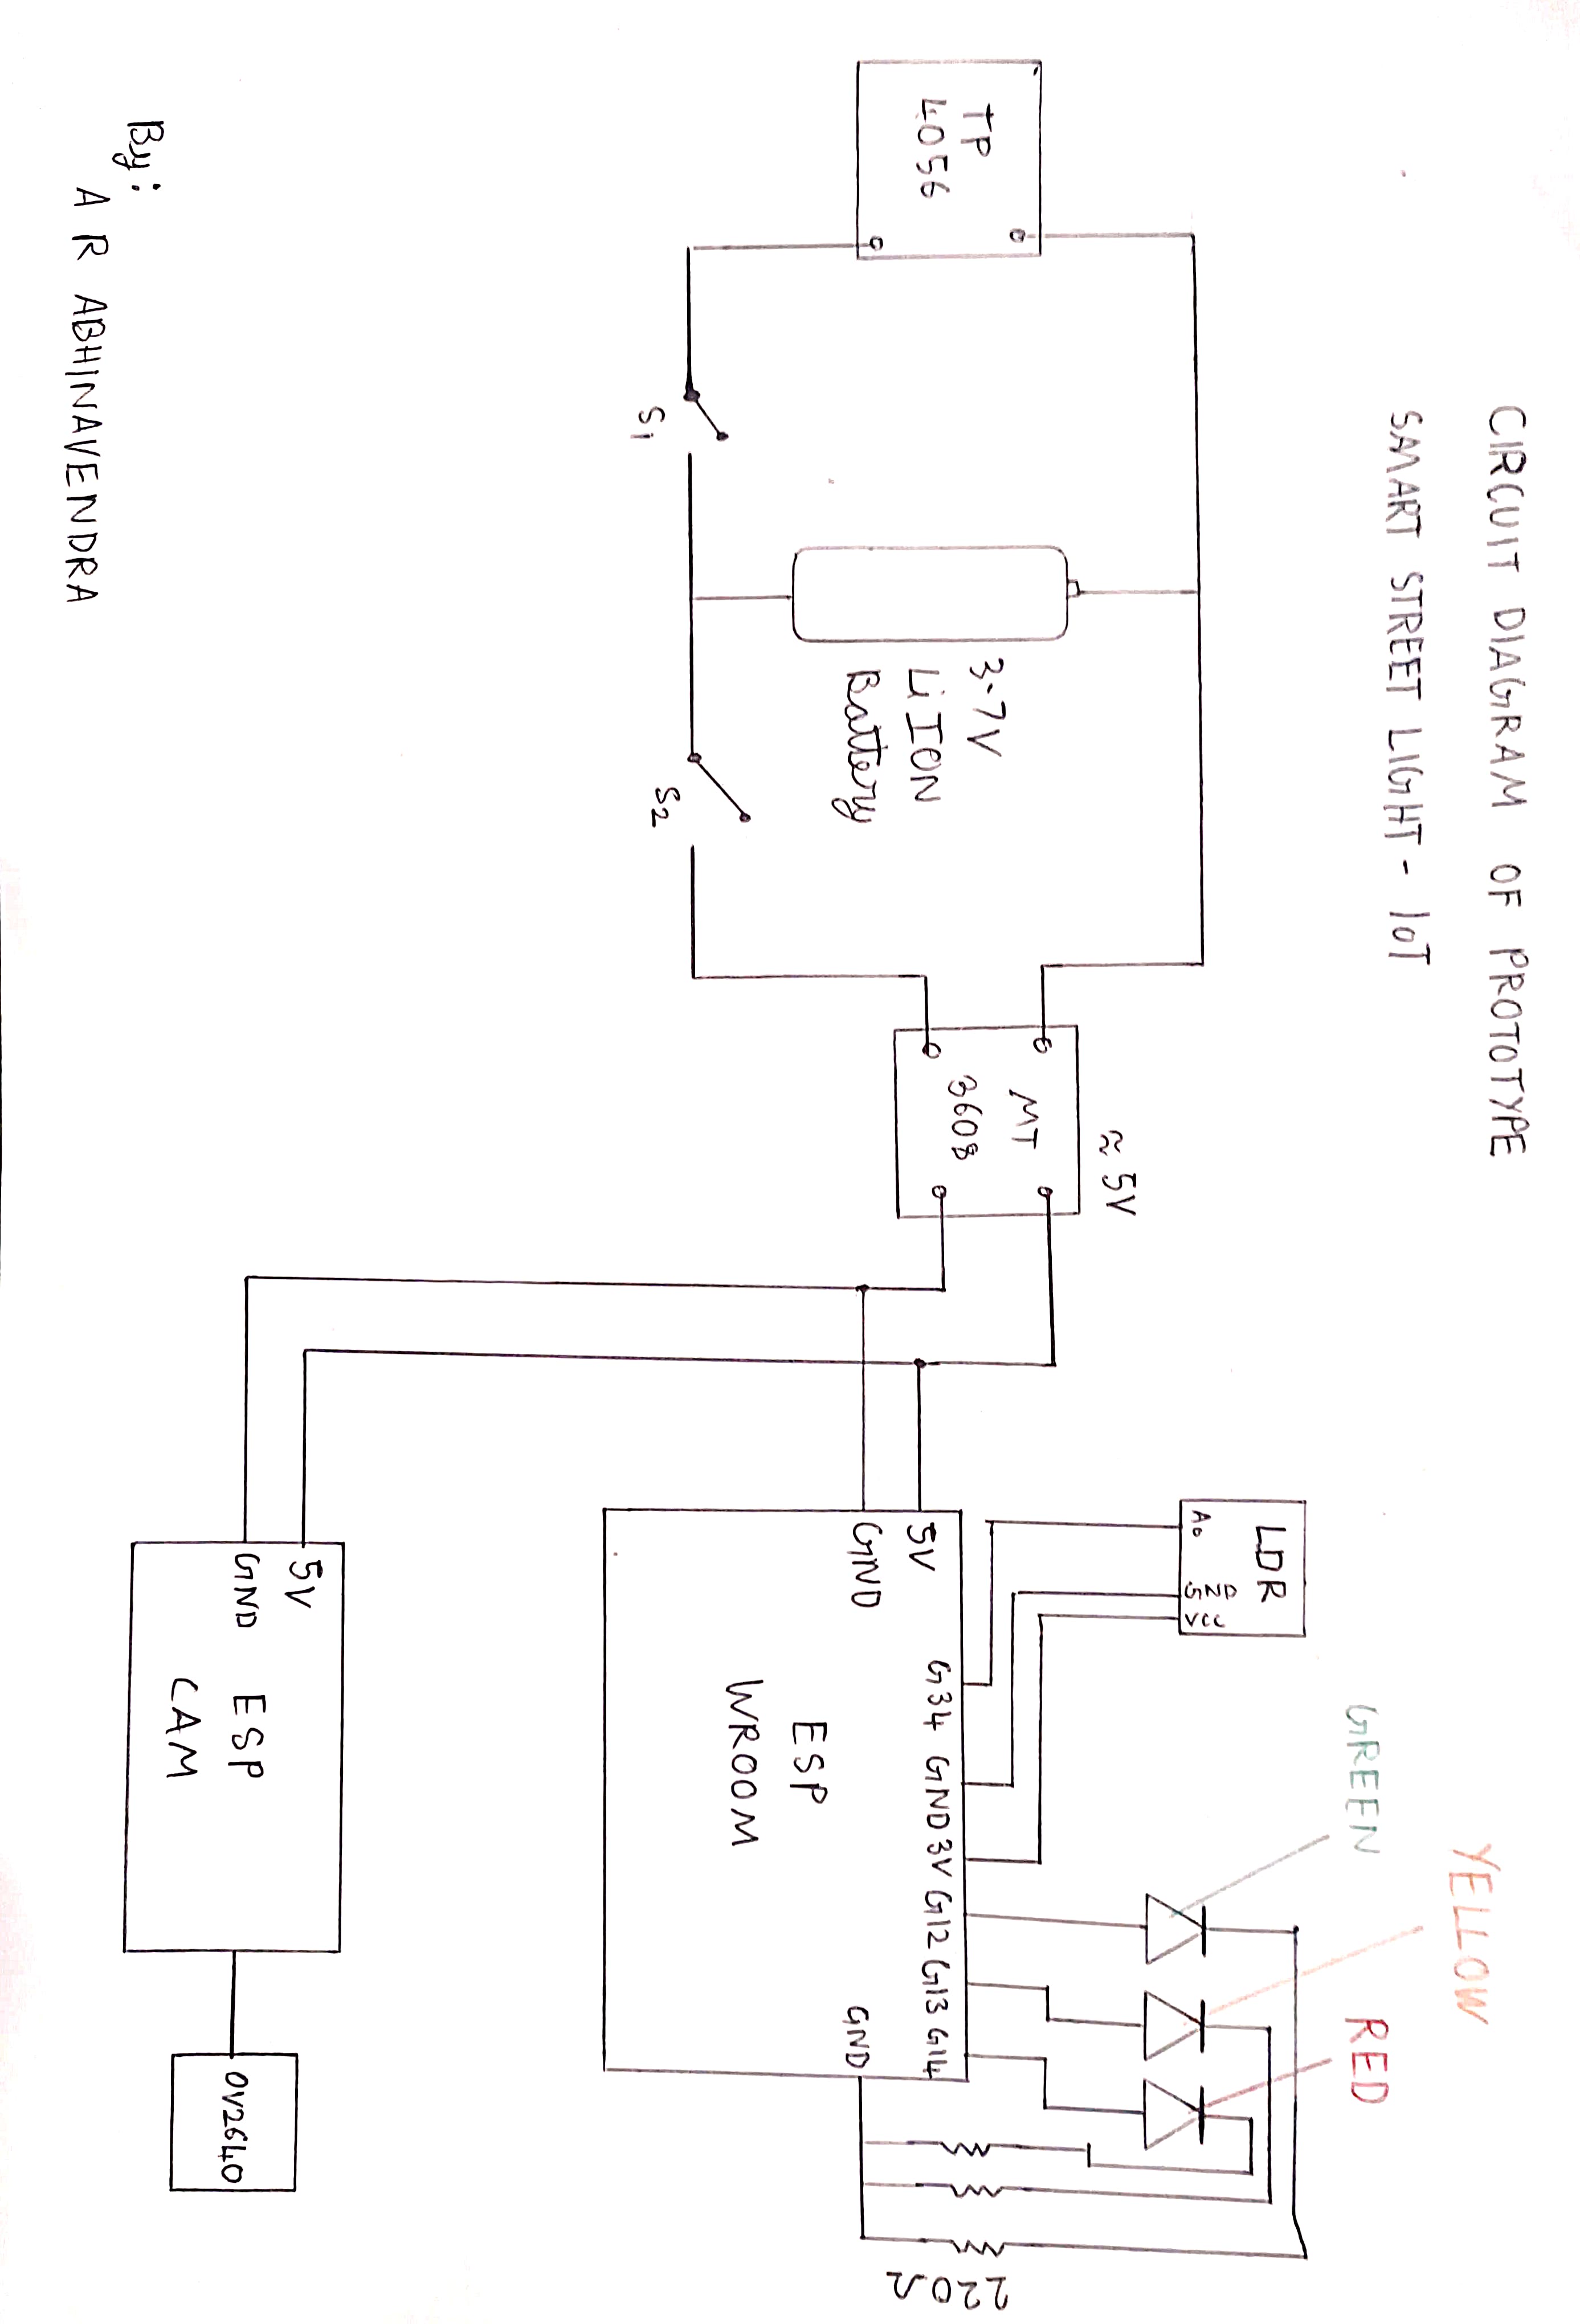 CIRCUIT DIAGRAM OF PROTOTYPE
SMART STREET LIGHT - IoT
TP
4056
S1
3.7V
Li ION
Battery
S2
≈ 5V
MT
3608
LDR
A0
GND
VCC
GREEN
YELLOW
RED
5V
GND
G34 GND 3V G12 G13 G14
GND
ESP
WROOM
220Ω
5V
GND
ESP
CAM
OV2640
By:
A R ABHINAVENDRA